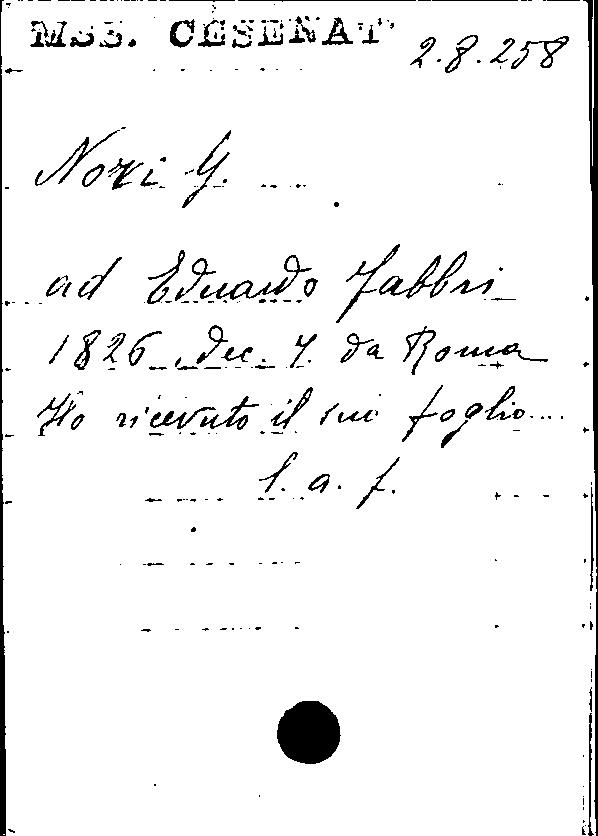 MSS. CESENAT.
2.8.258
Nori G.
ad Eduardo Fabbri
1826, dec. 7. da Roma
Ho ricevuto il suo foglio...
l. a. f.